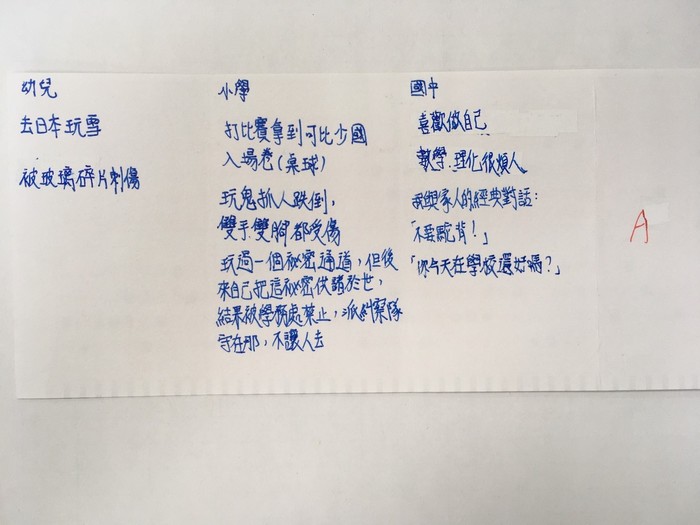 幼兒
去日本玩雪
被玻璃碎片刺傷
小學
打比賽拿到可比少國
入場卷(桌球)
玩鬼抓人跌倒,
雙手雙腳都受傷
玩過一個祕密通道,但後
來自己把這祕密供諸於世,
結果被學務處禁止,派糾察隊
守在那,不讓人去
國中
喜歡做自己
數學.理化很煩人
我與家人的經典對話:
「不要駝背!」
「你今天在學校還好嗎?」
A